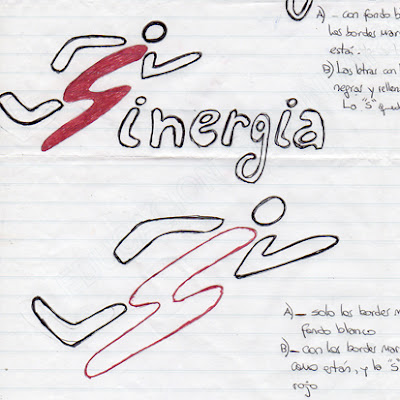 A) - con fondo b
los bordes mar
están.
B) Las letras con
negras y rellen
La "s" qued
Sinergia
A) - solo los bordes
fondo blanco
B) - con los bordes mar
como están, y la "s"
rojo